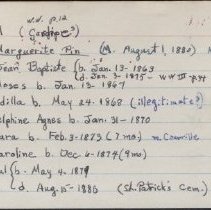 w.d. p.12
(Candide?)
Marguerite Pin (M. August 1, 1880)
Jean Baptiste {b. Jan. 13-1863
{d. Jan. 3-1875 - WW III p.94
Moses b. Jan. 13-1867
dilla b. May 24-1868 (illegitimate?)
elphine Agnes b. Jan. 31-1870
ura b. Feb. 8-1873 (7 mo) m Courville
aroline b. Dec 6-1874 (9mo)
l {b. May 4, 1879
{d. Aug. 5-1880 (St. Patrick's Cem.)